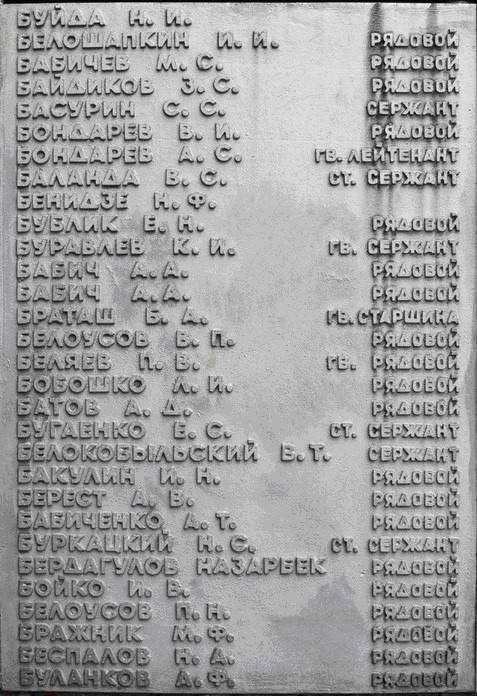 БУЙДА Н. И.
БЕЛОШАПКИН И. И. РЯДОВОЙ
БАБИЧЕВ М. С. РЯДОВОЙ
БАЙДИКОВ З. С. РЯДОВОЙ
БАСУРИН С. С. СЕРЖАНТ
БОНДАРЕВ В. И. РЯДОВОЙ
БОНДАРЕВ А. С. ГВ. ЛЕЙТЕНАНТ
БАЛАНДА В. С. СТ. СЕРЖАНТ
БЕНИДЗЕ Н. Ф.
БУБЛИК Е. Н. РЯДОВОЙ
БУРАВЛЕВ К. И. ГВ. СЕРЖАНТ
БАБИЧ А. А. РЯДОВОЙ
БАБИЧ А. А. РЯДОВОЙ
БРАТАШ Б. А. ГВ. СТАРШИНА
БЕЛОУСОВ В. П. РЯДОВОЙ
БЕЛЯЕВ П. В. ГВ. РЯДОВОЙ
БОБОШКО Л. И. РЯДОВОЙ
БАТОВ А. Д. РЯДОВОЙ
БУГАЕНКО Е. С. СТ. СЕРЖАНТ
БЕЛОКОБЫЛЬСКИЙ В. Т. СЕРЖАНТ
БАКУЛИН И. Н. РЯДОВОЙ
БЕРЕСТ А. В. РЯДОВОЙ
БАБИЧЕНКО А. Т. РЯДОВОЙ
БУРКАЦКИЙ Н. С. СТ. СЕРЖАНТ
БЕРДАГУЛОВ НАЗАРБЕК РЯДОВОЙ
БОЙКО И. В. РЯДОВОЙ
БЕЛОУСОВ П. Н. РЯДОВОЙ
БРАЖНИК М. Ф. РЯДОВОЙ
БЕСПАЛОВ Н. А. РЯДОВОЙ
БУЛАНКОВ А. Ф. РЯДОВОЙ